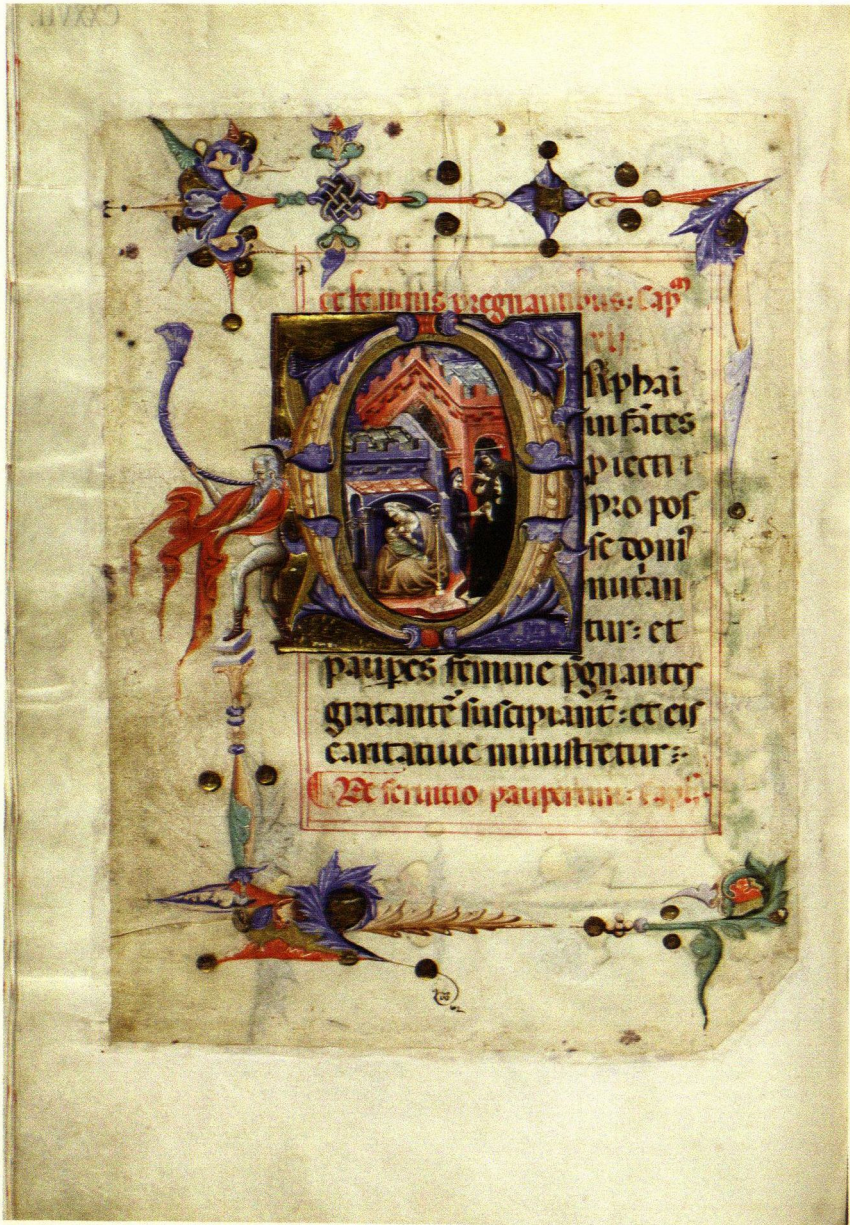 CXXVII.
et feminis pregnantibus: Cap̄m
xlj.
Rphai
infātes
ꝓiecti ī
pro pos
se domī
nutān
tur: et
pauꝑes femine p̄gnantes
gratantē suscipiant̄: et eis
caritative ministretur:
De servitio pauperum: Cap̄l